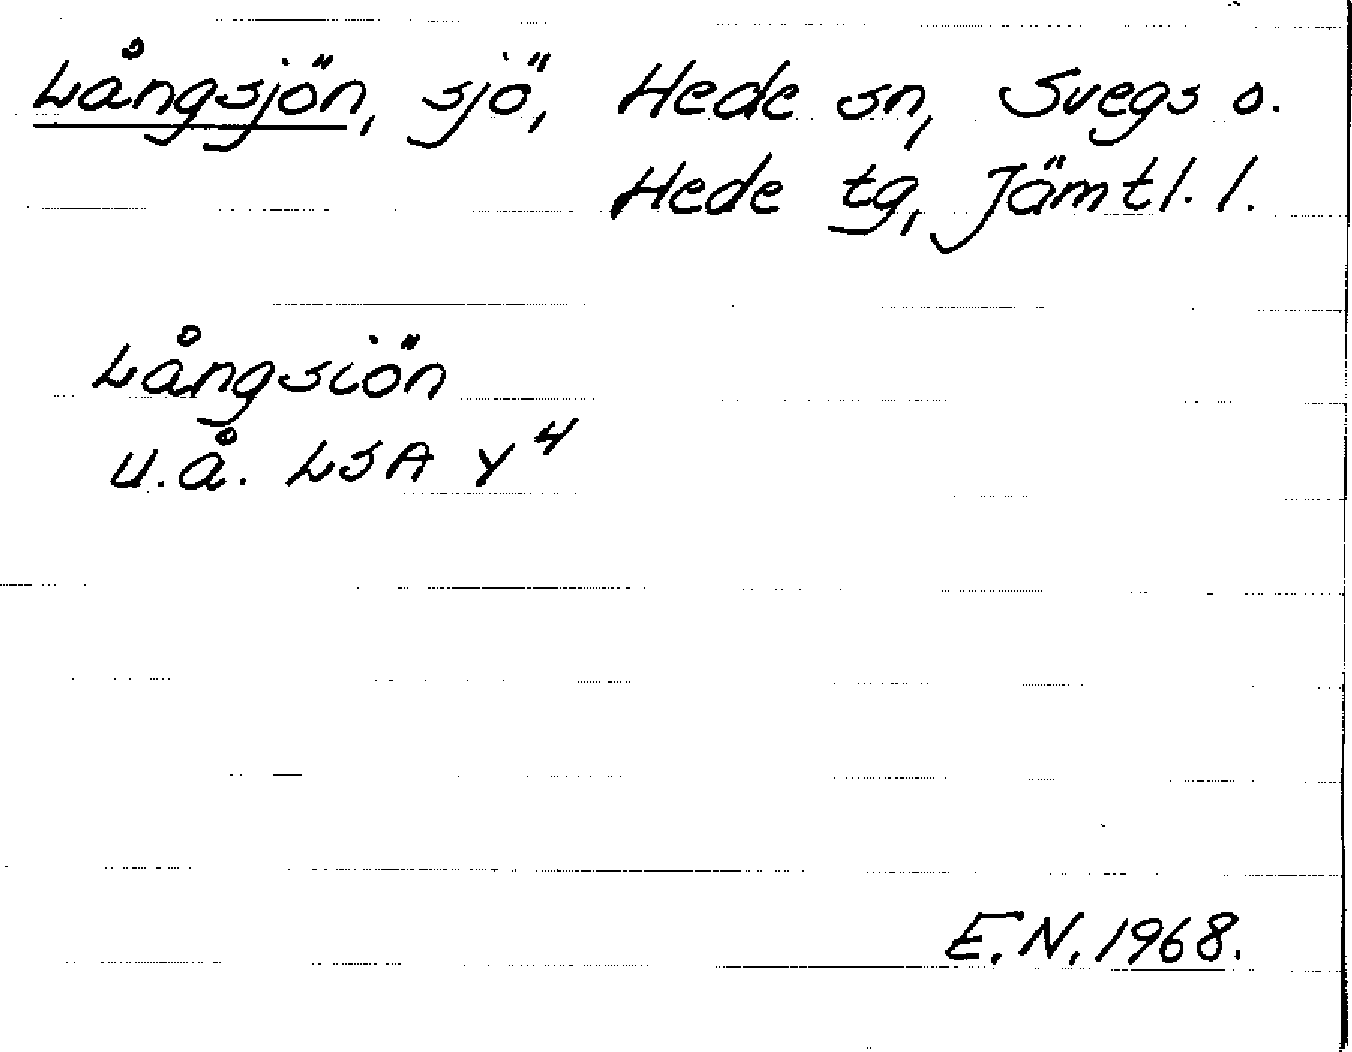 Långsjön, sjö, Hede sn, Svegs o.
Hede tg, Jämtl. l.
Långsiön
u.å. LSA Y4
E.N. 1968.